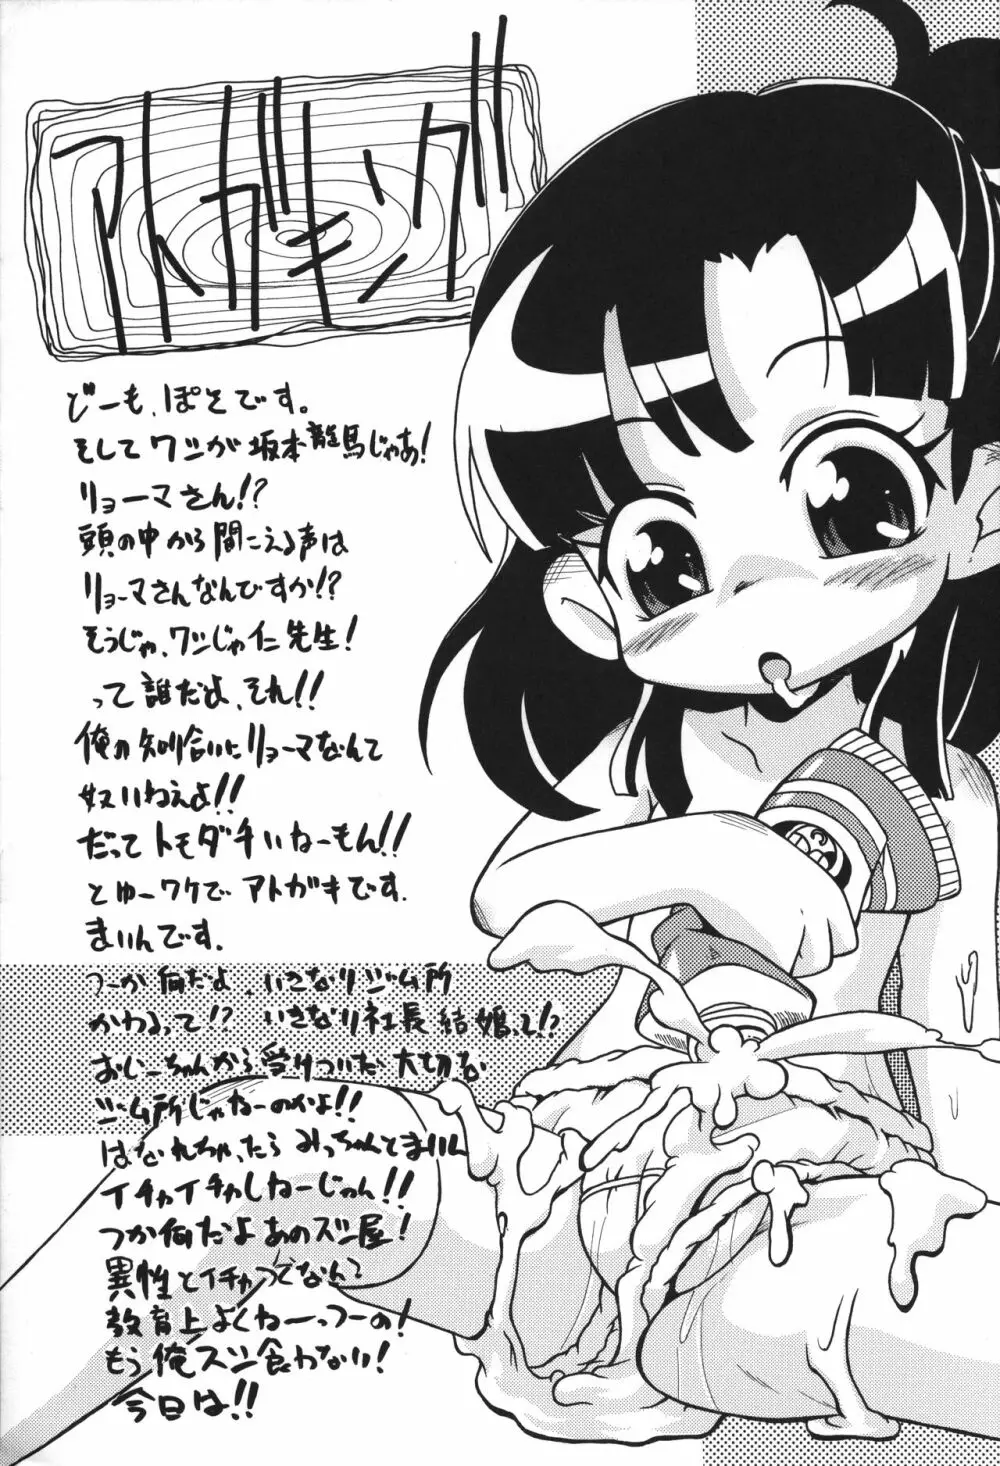 アトガキング
どーも、ぽそです。
そしてワシが坂本龍馬じゃあ!
リョーマさん!?
頭の中から聞こえる声は
リョーマさんなんですか!?
そうじゃ、ワシじゃ仁先生!
って誰だよ、それ!!
俺の知り合いにリョーマなんて
奴いねえよ!!
だってトモダチいねーもん!!
とゆーワケでアトガキです。
まいんです。
つーか何だよ、いきなりジム所
かわるって!? いきなり社長結婚って!?
おじーちゃんから受けついだ大切な
ジム所じゃねーのかよ!!
はなれちゃったらみっちゃんとまいん
イチャイチャしねーじゃん!!
つか何だよあのズシ屋!
異性とイチャつくなんて
教育上よくねーっつーの!
もう俺スシ食わない!
今日は!!